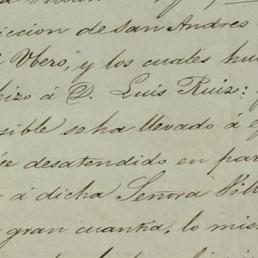 diccion de San Andres
Ubero," y los cuales hu
hizo á D. Luis Ruiz:
sible se ha llevado á e
desatendido en par
á dicha Señora Vill
gran cuantia, lo mis